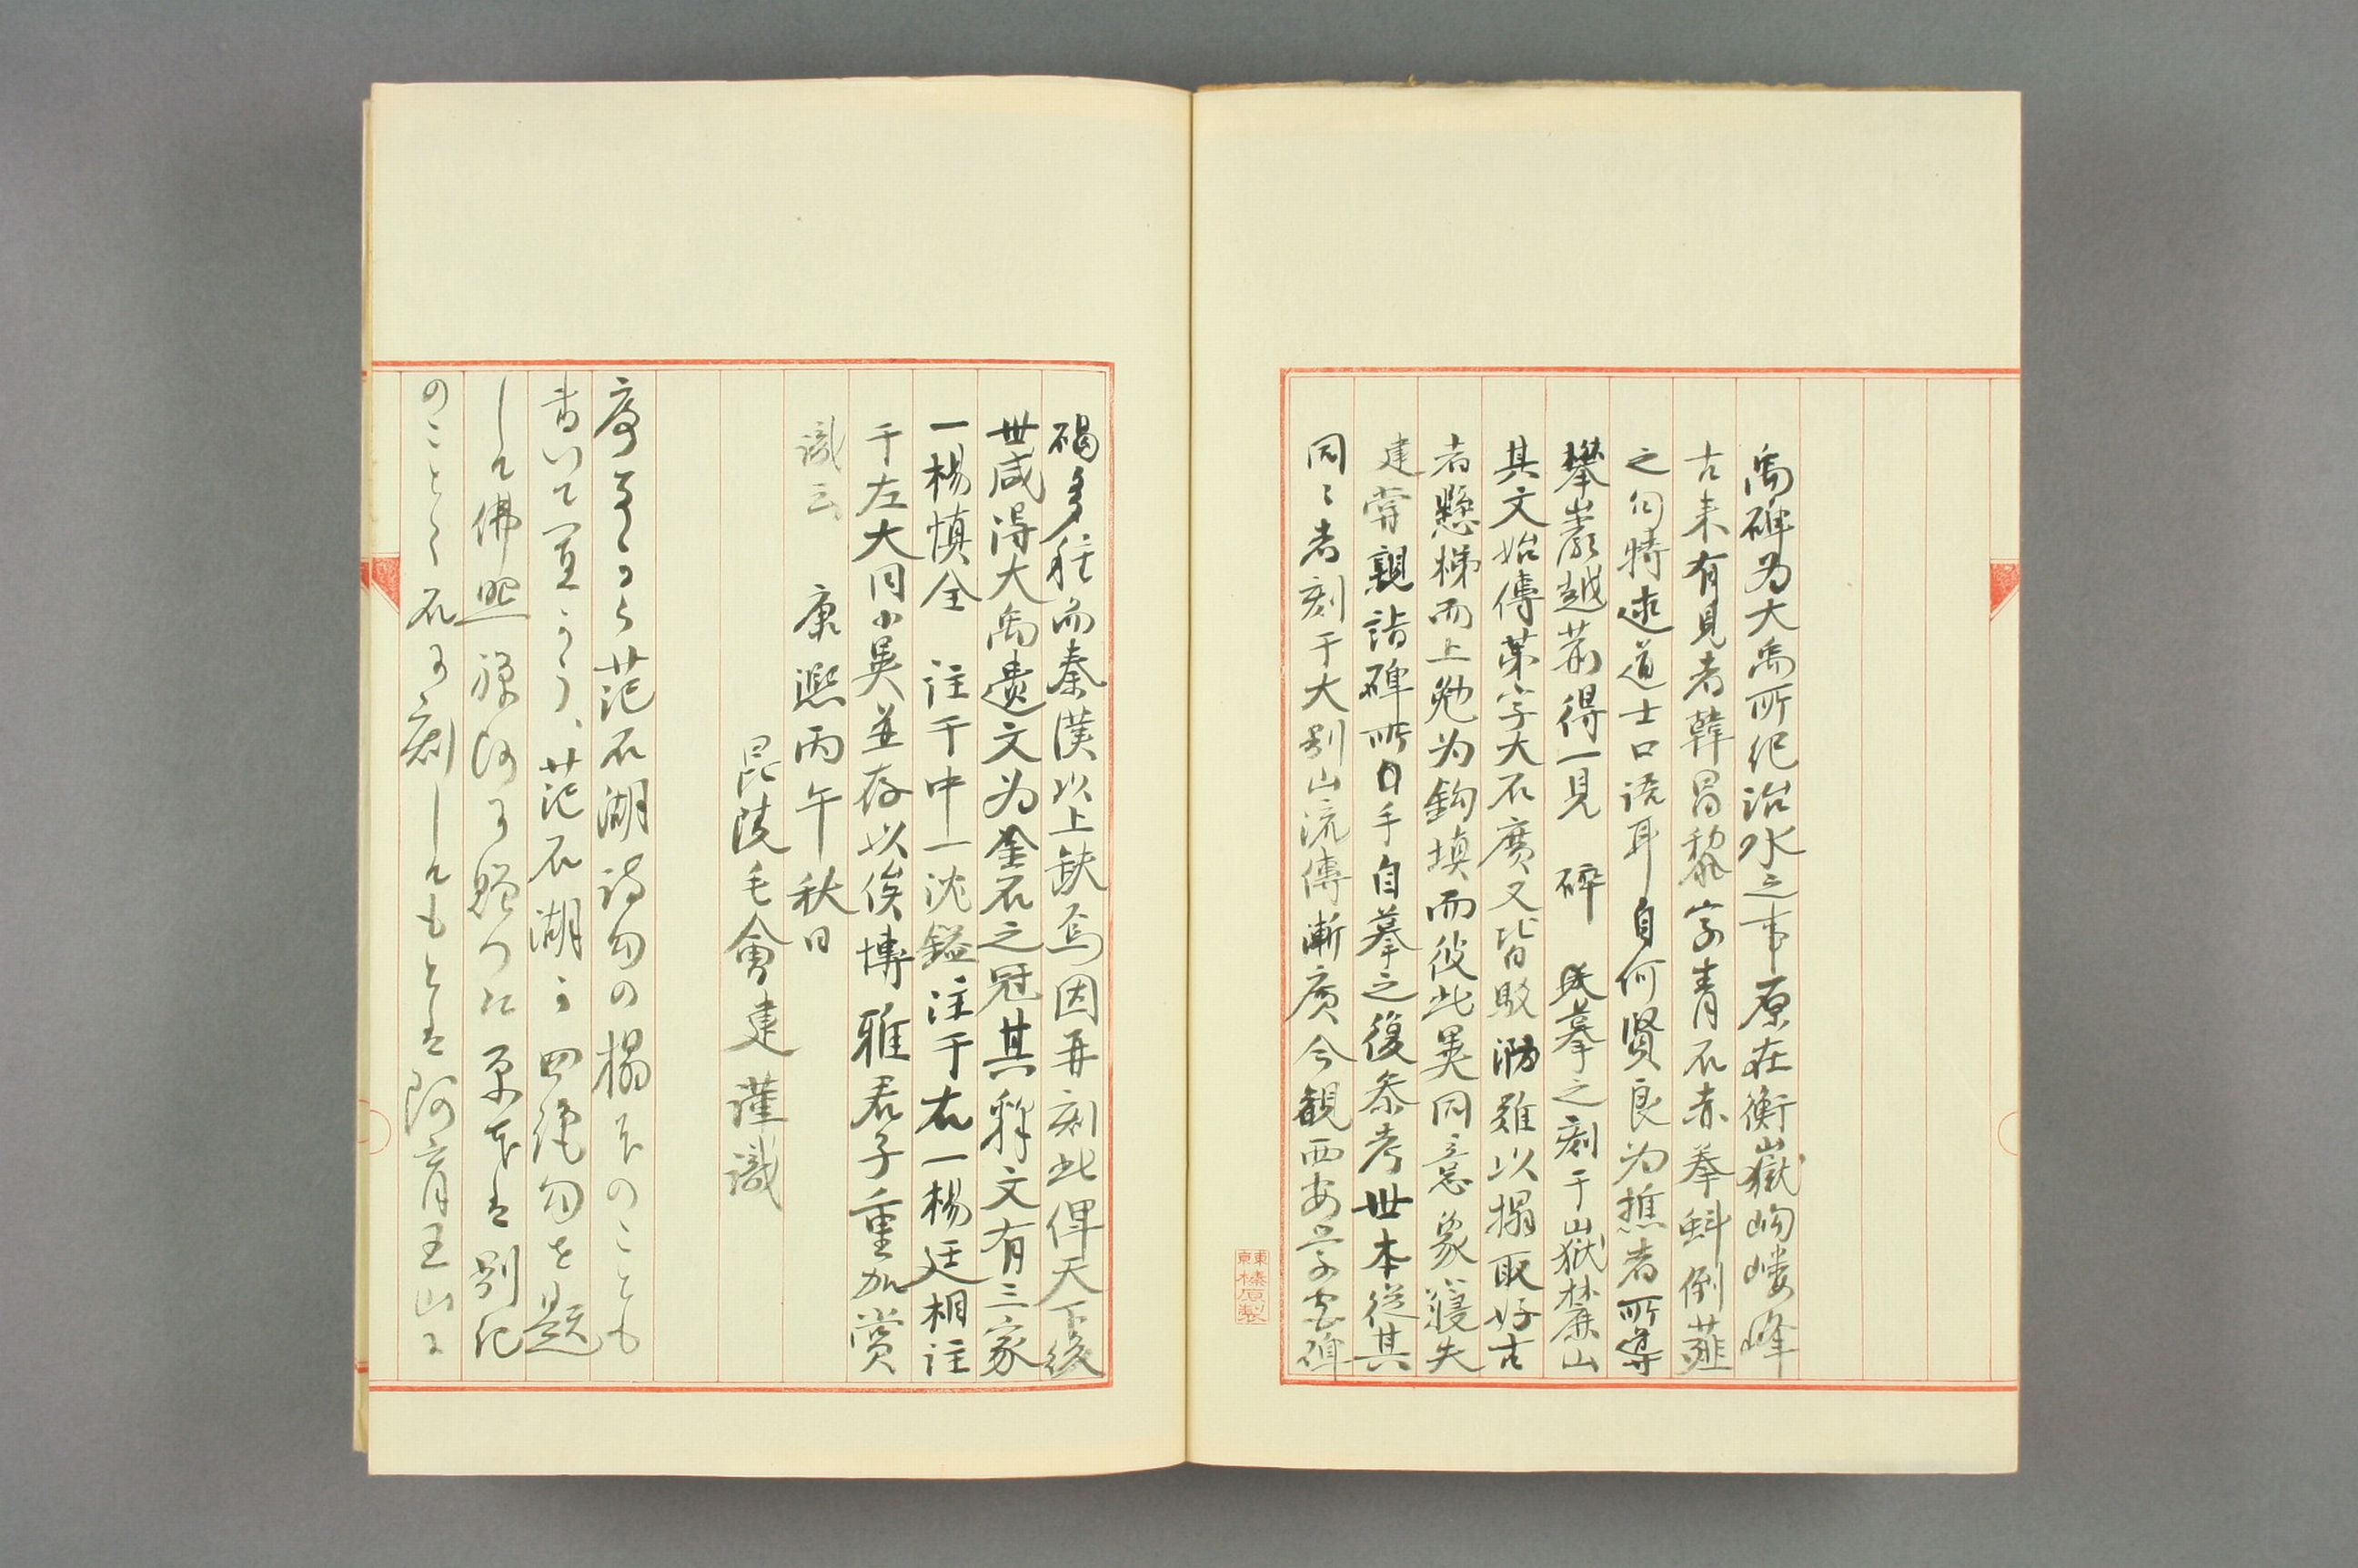 禹碑为大禹所纪治水之事原在衡嶽岣嶁峰
古来有見者韓昌黎字青石赤拳蚪倒薤
之句特述道士口語耳自何賢良为樵者所導
攀巖越荊得一見 碎 民摹之刻于嶽麓山
其文始傳第字大石廣又皆駁泐難以搨取好古
者懸梯而上勉为鈎填而彼此異同意象寢失
建甞親詣碑所口手自摹之復叅考世本從其
同〻者刻于大别山流傳漸廣今観西安学宮碑
碣多種而秦漢以上缺焉因再刻此俾天下後
世咸得大禹遺文为金石之冠其釋文有三家
一楊慎全 註于中一沈鎰注于右一楊廷相註
于左大同小異並存以俟博雅君子重加賞
識云 康熙丙午秋日
昆陵毛會建謹識
序手から范石湖詩句の搨本のことも
書いて置こう、范石湖の四絶句を題
して佛照禅師に贈つた原本は別紀
のことく石に刻してもとは阿育王山に
東京榛原製